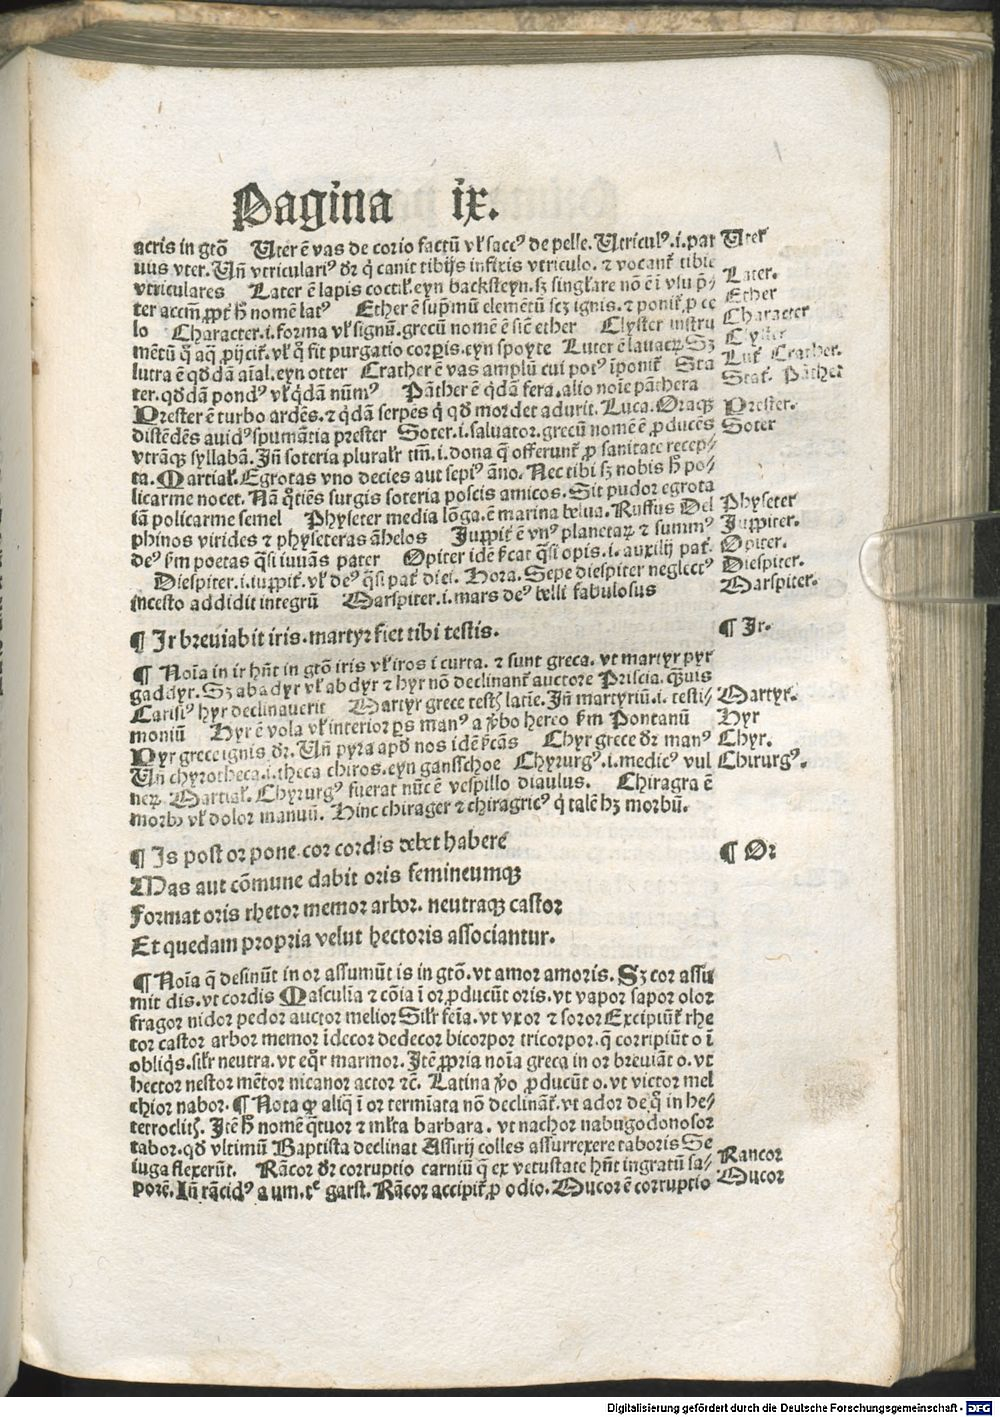 Pagina ix.
acris in gtõ Uter ē vas de corio factū vł sacc⁹ de pelle. Utricul⁹.i.par Uter
uus vter. Uñ vtriculari⁹ dr̄ q̇ canit tibijs infixis vtriculo. ⁊ vocant̄ tibie
vtriculares Later ē lapis coctil̄.eyn backsteyn.sꝫ singłare nō ē ī vsu p̄⸗ Later.
ter accm̄ ꝓpt̄ h̄ nomē lat⁹ Ether ē sup̄mū elemētū scꝫ ignis. ⁊ ponit̄ ꝓ ce Ether
lo Character.i.forma vł signū.grecū nomē ē sic̄ ether Clyster instru Character
mētū q̊ aq̄ ꝓijcit̄. vł q̊ fit purgatio corꝑis.eyn spoyte Luter ē lauacꝝ Sꝫ Clyster
lutra ē qd̄dā aīal.eyn otter Crather ē vas amplū cui pot⁹ īponit̄ Sta Lut̄ Crather.
ter.qd̄dā pond⁹ vł q̇dā nūm⁹ Pāther ē q̄dā fera.alio noīe pāthera Stat̄. Pāther
Prester ē turbo ardēs. ⁊ q̇dā serpēs q̇ qd̄ mordet adurit. Luca. Oraqꝫ Prester.
distēdēs auid⁹ spumātia prester Soter.i.saluator.grecū nomē ē ꝓducēs Soter
vtrāqꝫ syllabā. Iñ soteria pluralr̄ tm̄.i.dona q̄ offerunt̄ ꝓ sanitate recep⸗
ta. Martial̄. Egrotas vno decies aut sepi⁹ āno. Nec tibi sꝫ nobis h̄ po⸗
licarme nocet. Nā q̊tiēs surgis soteria poscis amicos. Sit pudor egrota
iā policarme semel Physeter media lōga.ē marina belua. Ruffus Del Physeter
phinos virides ⁊ physeteras āhelos Iuppit̄ ē vn⁹ planetaꝝ ⁊ summ⁹ Iuppiter.
de⁹ s̄m poetas q̄si iuuās pater Opiter idē s̄cat q̄si opis.i.auxilij pat̄. Opiter.
Diespiter.i.iuppit̄. vł de⁹ q̄si pat̄ diei. Hora. Sepe diespiter neglect⁹ Diespiter.
incesto addidit integrū Marspiter.i.mars de⁹ belli fabulosus Marspiter.
¶ Ir breuiabit iris.martyr fiet tibi testis. ¶ Ir.
¶ Noīa in ir hn̄t in gtō iris vł iros i curta. ⁊ sunt greca. vt martyr pyr
gaddyr. Sꝫ abadyr vł abdyr ⁊ hyr nō declinant̄ auctore Priscia. Quis
Carisi⁹ hyr declinauerit Martyr grece test̄ latie. Iñ martyriū.i. testi⸗ Martyr.
moniū Hyr ē vola vł interior ꝑs man⁹ a ꝟbo hereo s̄m Pontanū Hyr
Pyr grece ignis dr̄. Uñ pyra apd̄ nos idē s̄cās Chyr grece dr̄ man⁹ Chyr.
Uñ chyrotheca.i.theca chiros.eyn gansschoe Chyrurg⁹.i.medic⁹ vul Chirurg⁹.
neꝝ. Martial̄. Chyrurg⁹ fuerat nūc ē vespillo diaulus. Chiragra ē
morb⁹ vł dolor manuū. Hinc chirager ⁊ chiragric⁹ q̇ talē hꝫ morbū.
¶ Is post or pone.cor cordis debet habere ¶ Or
Mas aut cōmune dabit oris femineumqꝫ
Format oris rhetor memor arbor. neutraqꝫ castor
Et quedam propria velut hectoris associantur.
¶ Noīa q̄ desinūt in or assumūt is in gtō. vt amor amoris. Sꝫ cor assu
mit dis.vt cordis Masculīa ⁊ cōia ī or ꝓducūt oris. vt vapor sapor olor
fragor nidor pedor auctor melior Silr̄ feīa. vt vxor ⁊ soror Excipiūt̄ rhe
tor castor arbor memor īdecor dedecor bicorpor tricorpor.q̄ corripiūt o ī
obliq̇s.silr̄ neutra. vt eq̊r marmor. Itē ꝓpria noīa greca in or breuiāt o. vt
hector nestor mētor nicanor actor ⁊c̄. Latina ꝟo ꝓducūt o. vt victor mel
chior nabor. ¶ Nota qꝙ aliq̄ ī or termīata nō declināt̄.vt ador de q̊ in he⸗
teroclit̄. Itē h̄ nomē q̄tuor ⁊ mlt̄a barbara. vt nachor nabugodonosor
tabor.qd̄ vltimū Baptista declinat Assirij colles assurrexere taboris Se
iuga flexerūt. Rācor dr̄ corruptio carniū q̄ ex vetustate hn̄t ingratū sa⸗ Rancor
porē. Iñ rācid⁹ a um. tͤ garst. Rācor accipit̄ ꝓ odio. Mucor ē corruptio Mucor
Digitalisierung gefördert durch die Deutsche Forschungsgemeinschaft - DFG